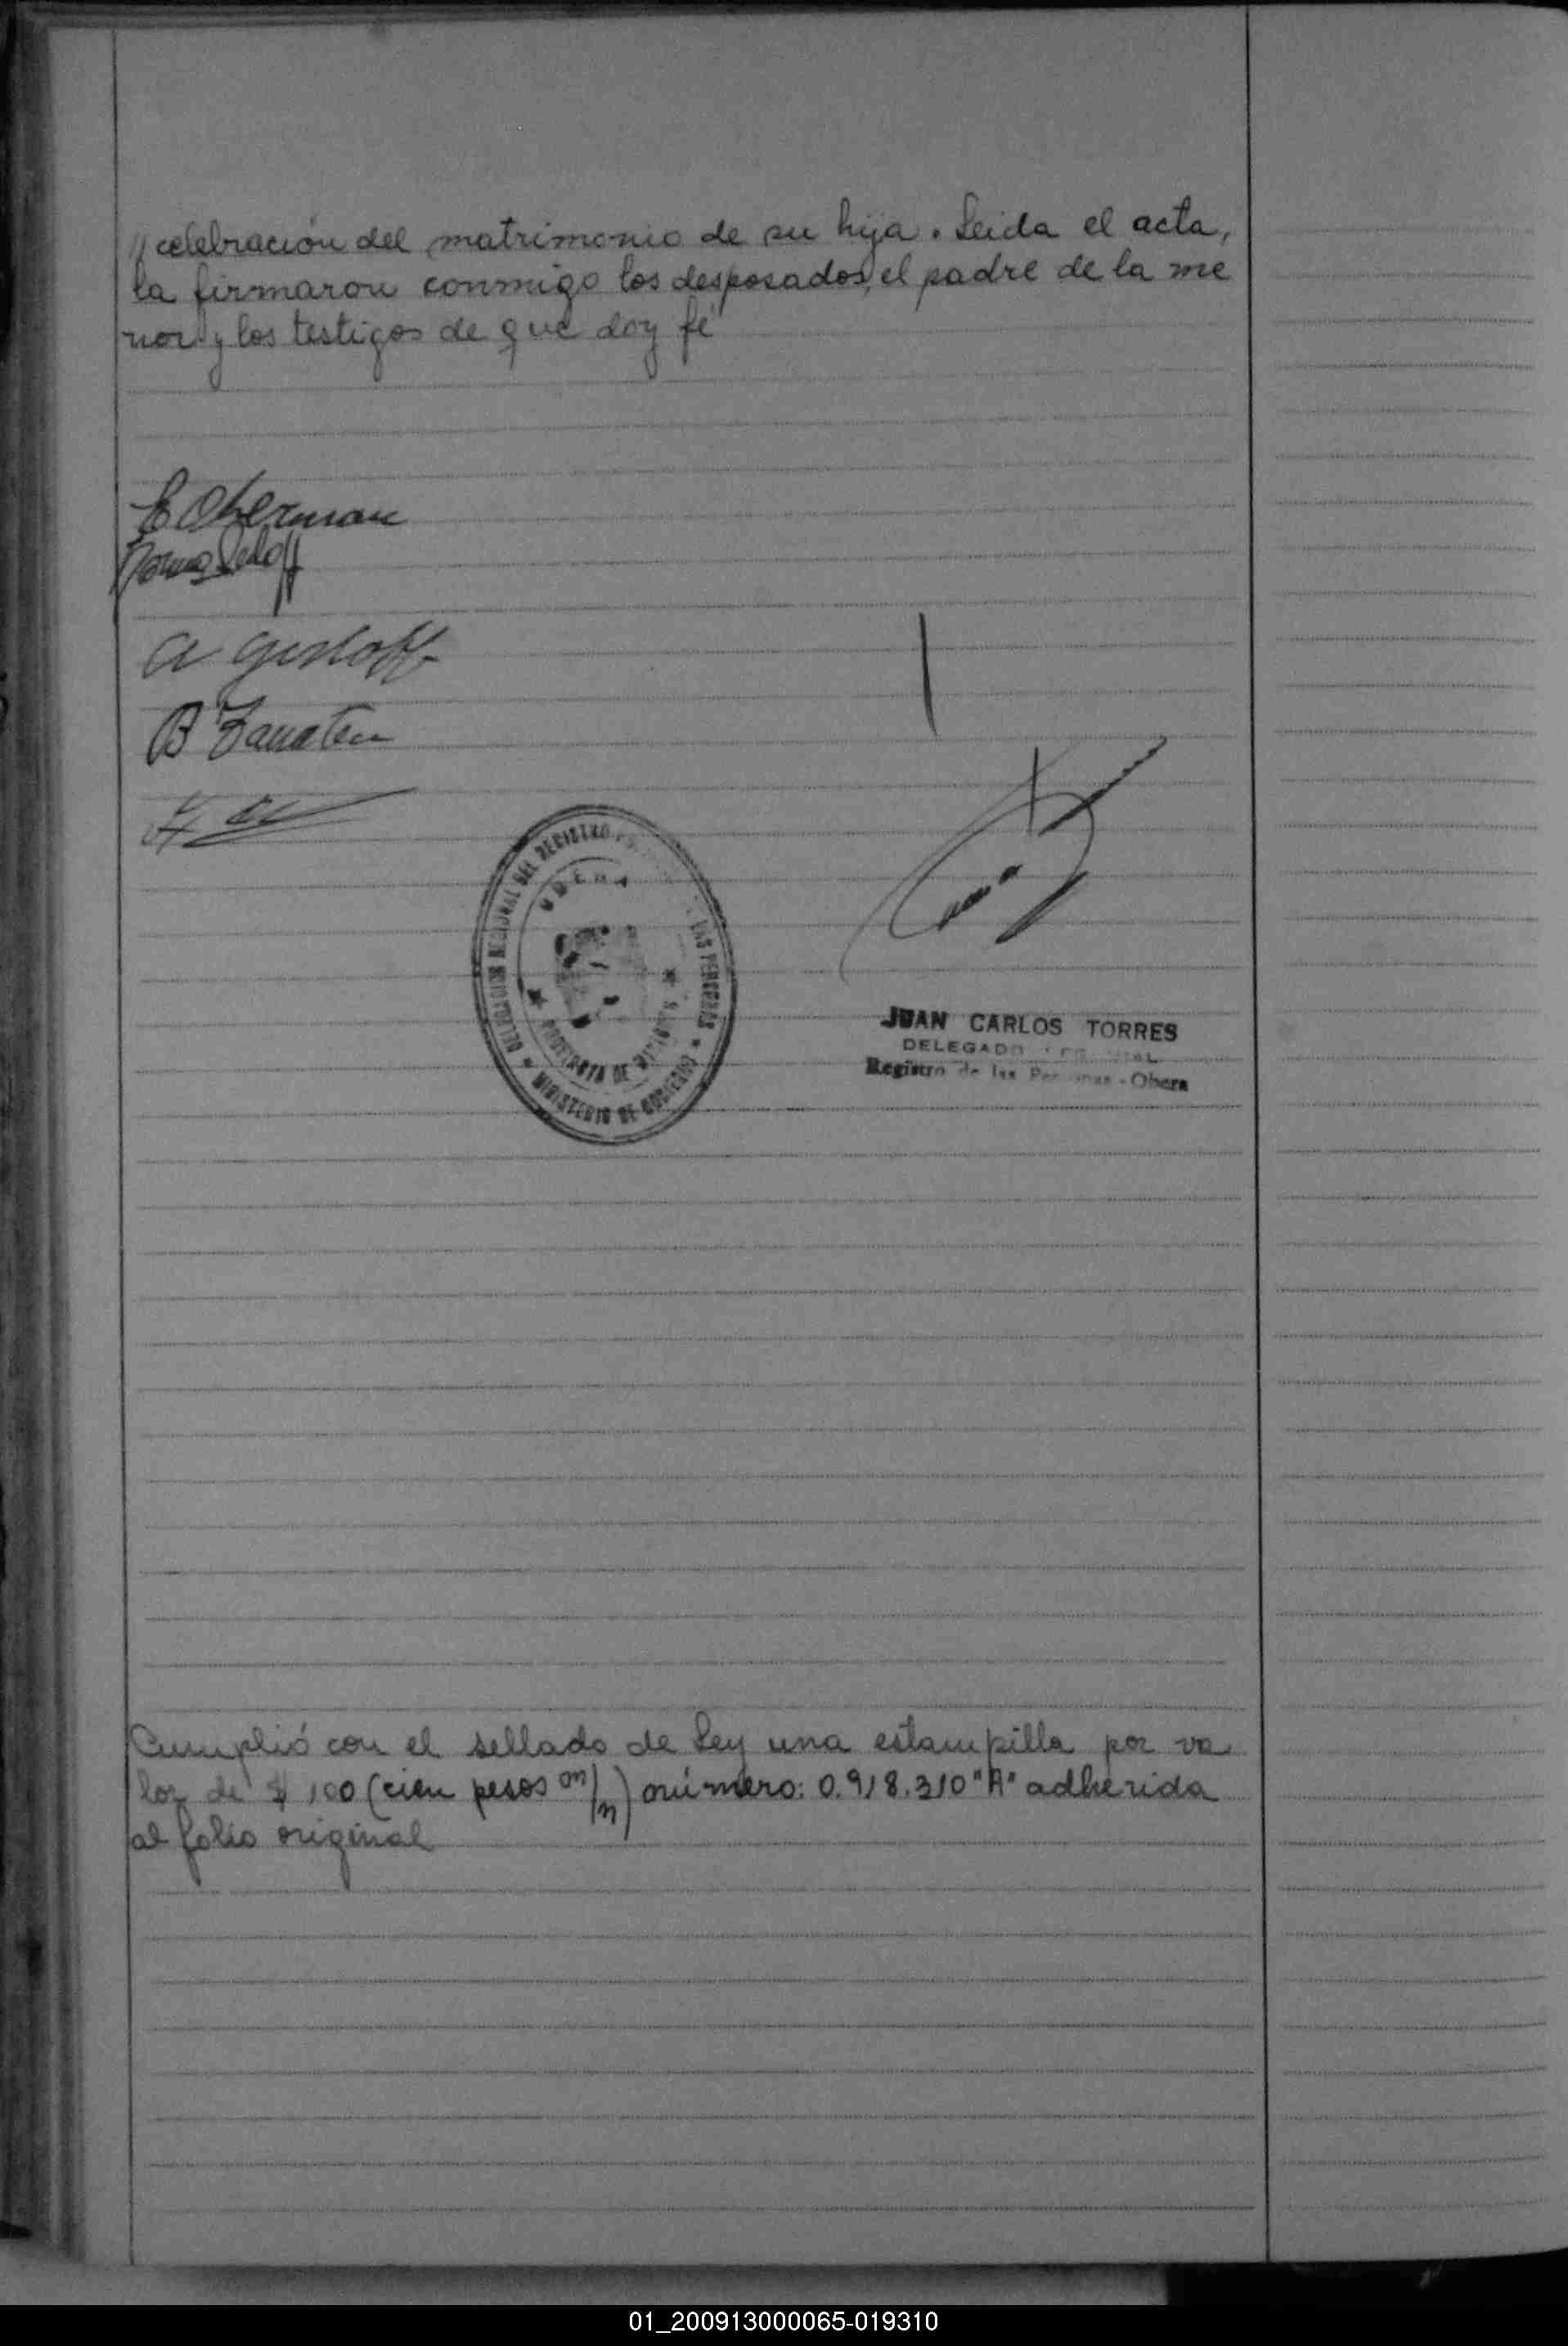 // celebración del matrimonio de su hija. Leida el acta,
la firmaron conmigo los desposados, el padre de la me
nor y los testigos de que doy fé
E Oberman
A Gerloff
B Zanaten
DELEGACION REGIONAL DEL REGISTRO LAS PERSONAS
OBERA
PROVINCIA DE MISIONES
MINISTERIO DE GOBIERNO
JUAN CARLOS TORRES
DELEGADO
Registro de las Personas - Obera
Cumplió con el sellado de Ley una estampilla por va
lor de $ 100 (cien pesos m/n) número: 0.918.310 "A" adherida
al folio original
01_200913000065-019310